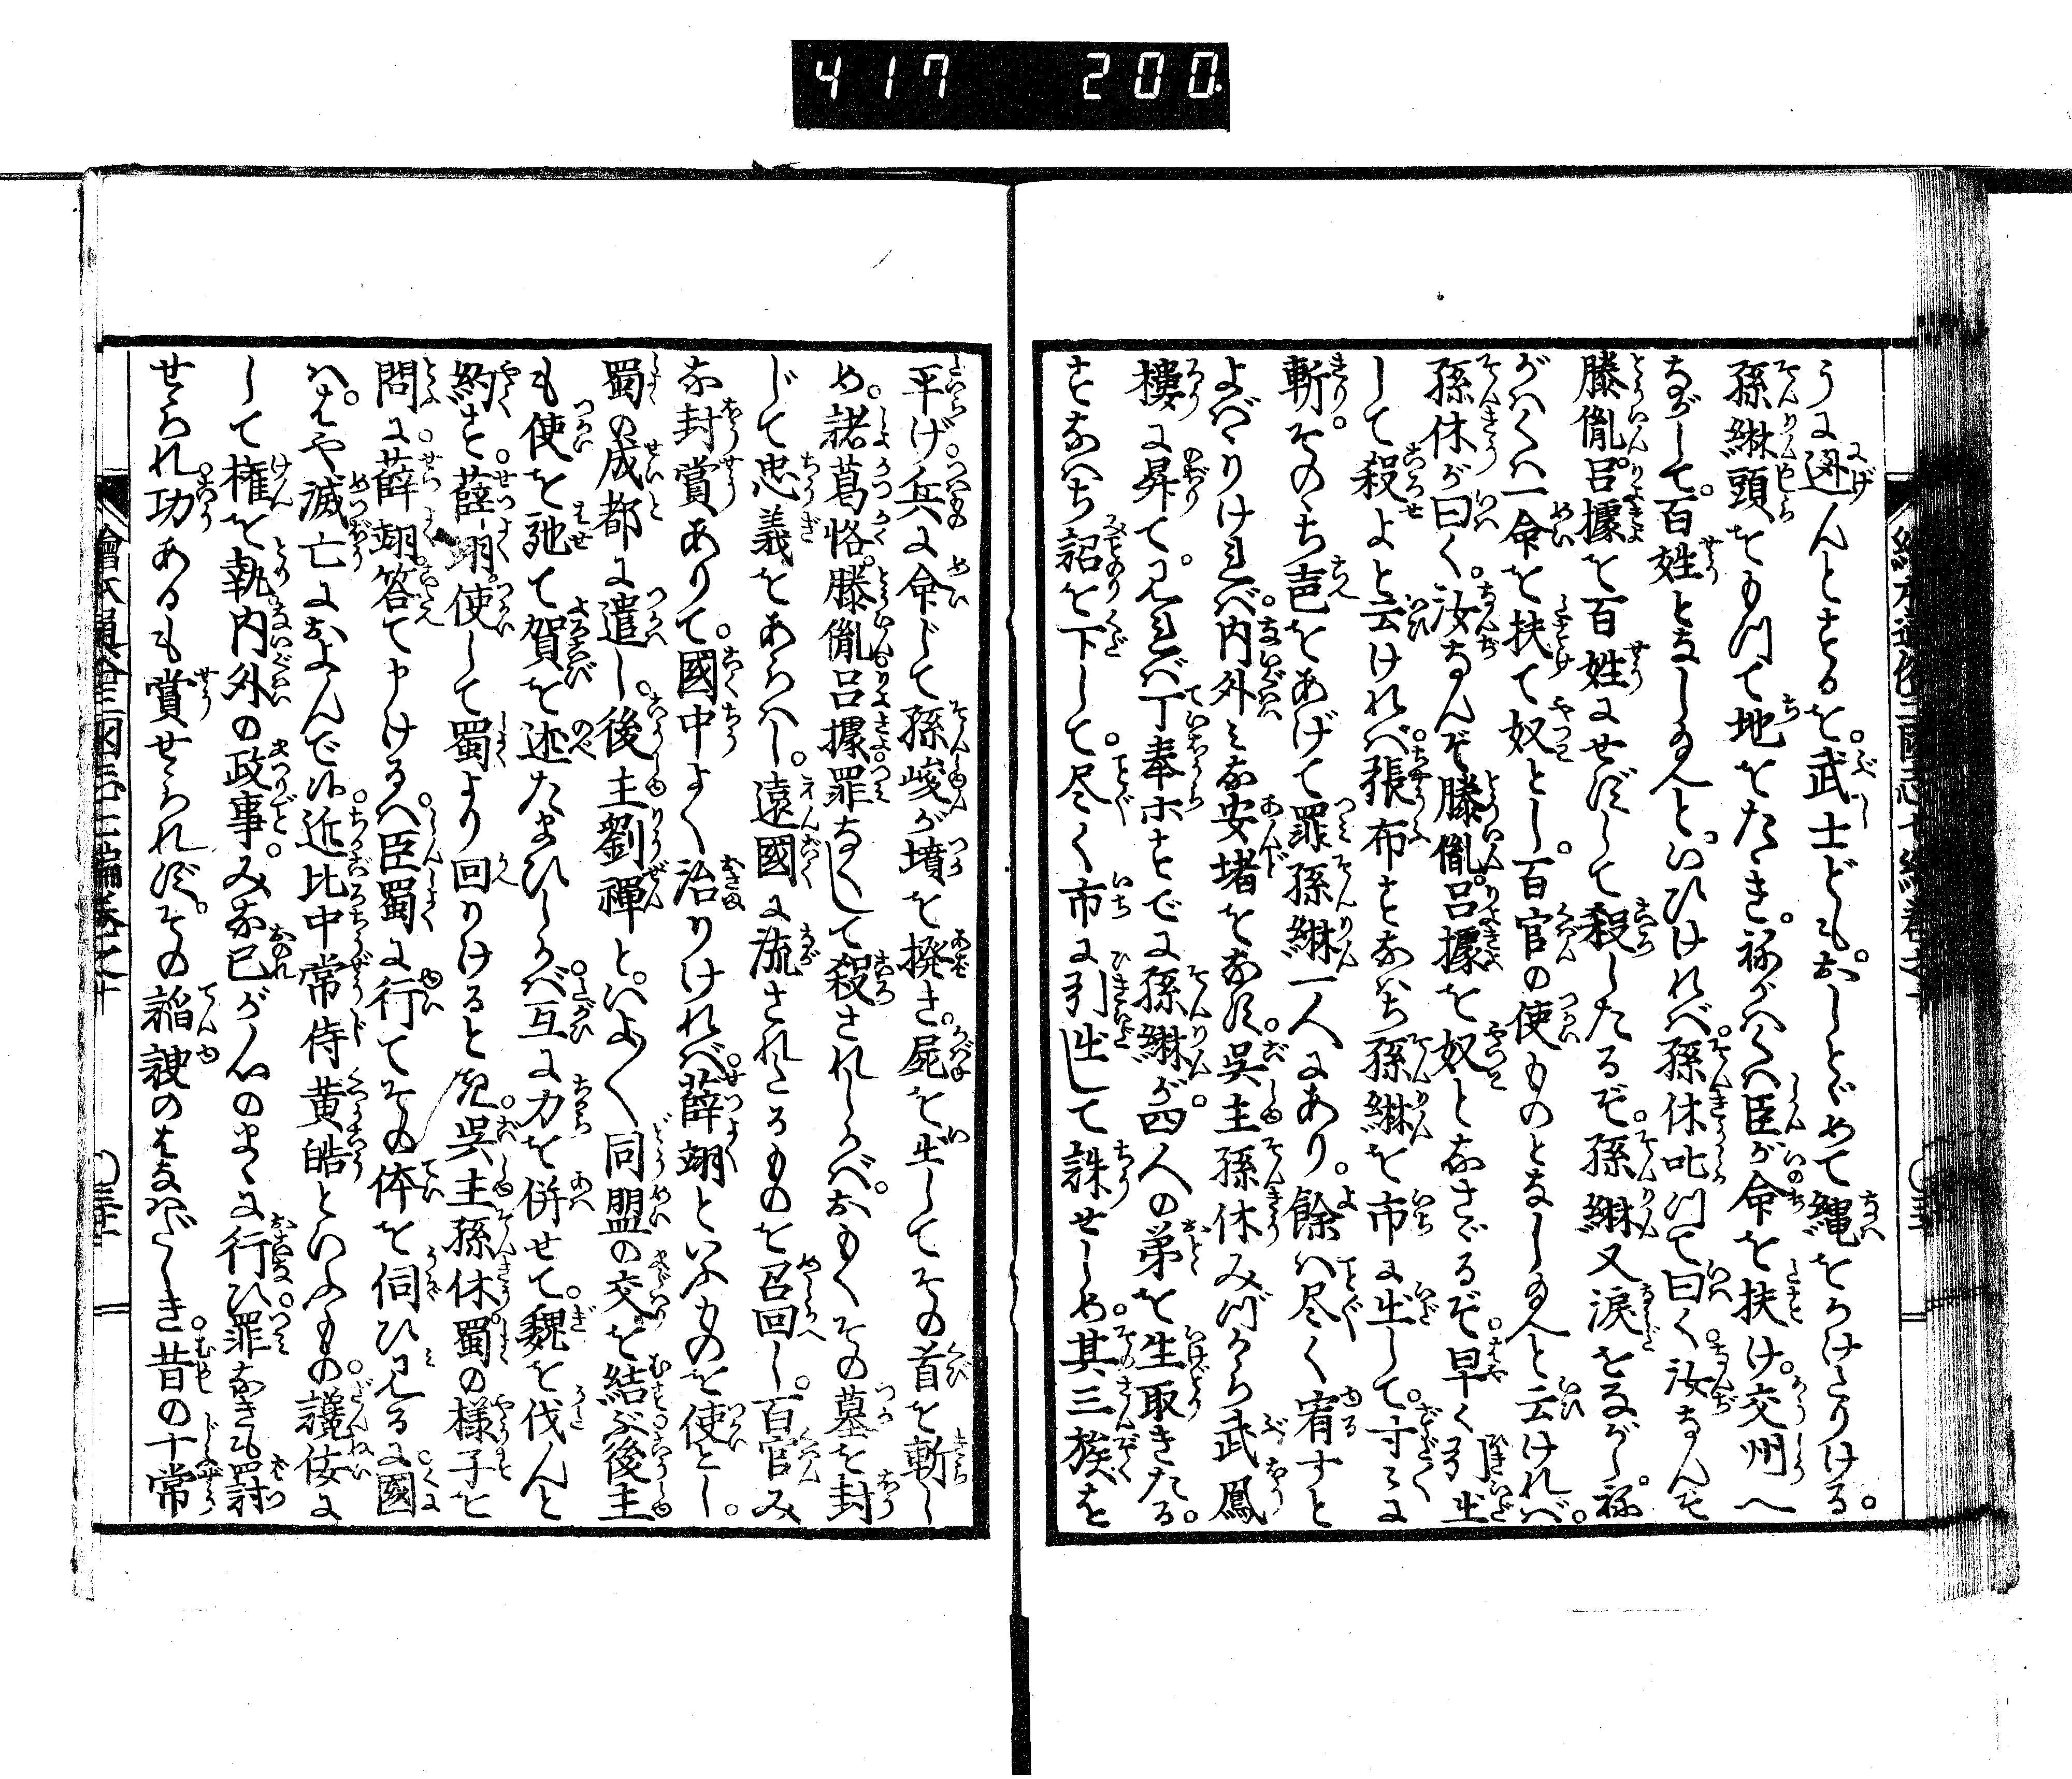 417 200
うに迯んとするを。武士ども。おしとゞめて縄をかけたりける。
孫綝頭をもつて地をたゝき。称がハくハ臣が命を扶け。交州へ
ながして。百姓となし給へと。いひけれバ孫休叱つて曰く。汝なんぞ
滕胤呂據を百姓にせずして殺したるぞ。孫綝又涙をながし。称
がハくハ一命を扶て奴とし。百官の使ものとなし給へと云けれバ。
孫休が曰く。汝なんぞ滕胤呂據を奴となさゞるぞ。早く引出
して殺よと云けれバ。張布すなハち孫綝を市に出して。寸〻に
斬。そのゝち声をあげて罪孫綝一人にあり。餘ハ尽く宥すと
よばゝりけれバ。内外ミな安堵をなす。呉主孫休みづから武鳳
樓に昇て。見れバ丁奉ホすでに孫綝が。四人の弟を生取きたる。
すなハち詔を下して。尽く市に引出して誅せしめ。其三族を
平げ。兵に命じて孫峻が墳を撥き。屍を出してその首を斬し
め。諸葛恪。滕胤呂據罪なくして殺されしかバ。おもくその墓を封
じて忠義をあらハし。遠國に流されたるものを召回し。百官み
な封賞ありて。國中よく治りけれバ。薛翊といふものを使とし。
蜀の成都に遣し。後主劉禪と。いよ〳〵同盟の交を結ぶ。後主
も使を馳て賀を述たまひしかバ。互に力を併せて。魏を伐んと
約す。薛翊。使して蜀より回りけるとき。呉主孫休。蜀の様子を
問に。薛翊答て申けるハ。臣蜀に行てその体を伺ひ見るに。國
ハはや滅亡におよんで候。近比中常侍黄皓といふもの。讒佞に
して権を執。内外の政事。みな己が心のまゝに行ひ。罪なきも罸
せられ。功あるも賞せられず。その謟諛のはなハだしき。昔の十常